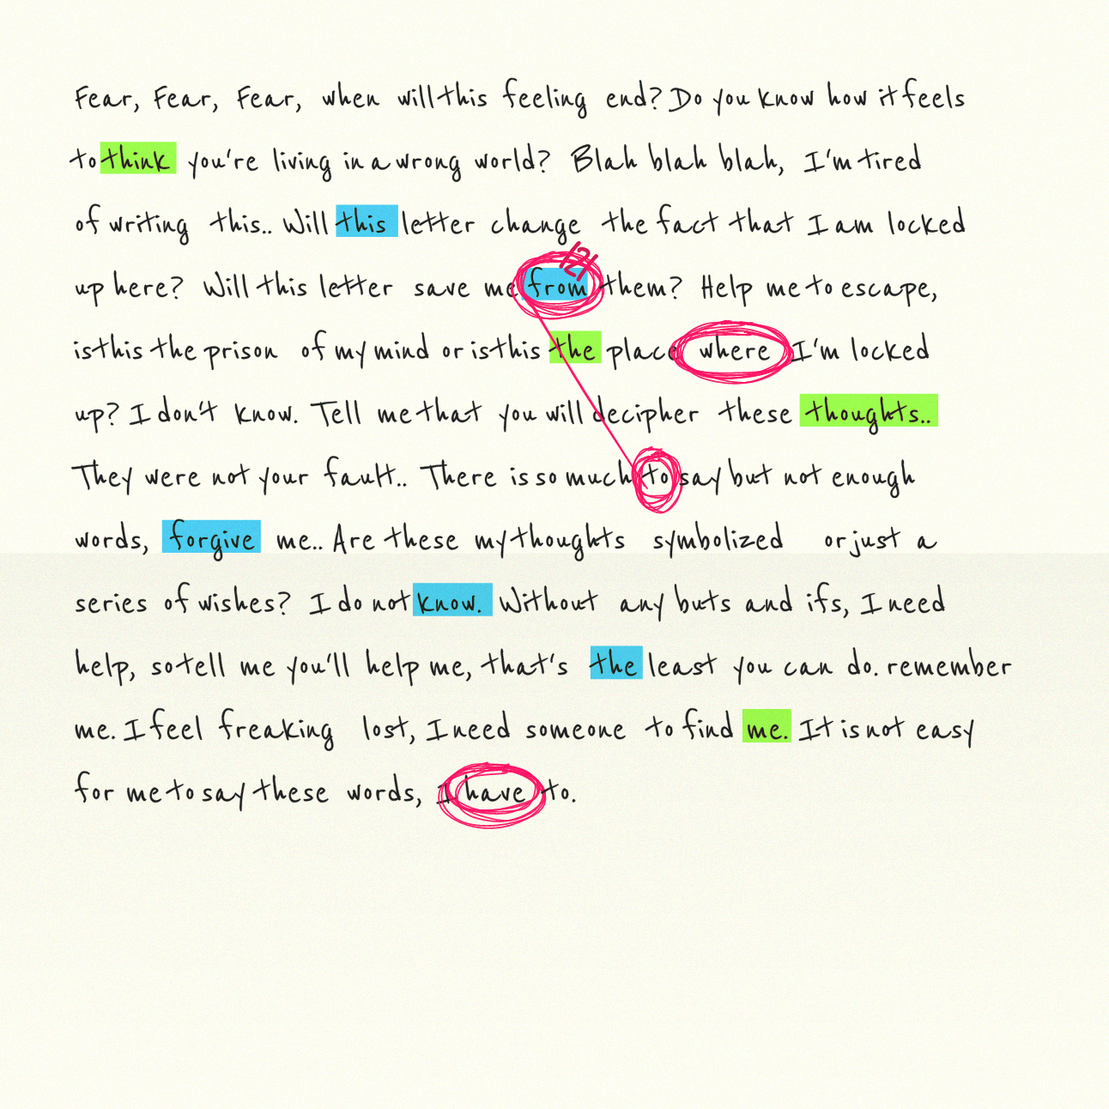 Fear, Fear, Fear, when will this feeling end? Do you know how it feels
to think you're living in a wrong world? Blah blah blah, I'm tired
of writing this.. Will this letter change the fact that I am locked
up here? Will this letter save me from them? Help me to escape,
is this the prison of my mind or is this the place where I'm locked
up? I don't know. Tell me that you will decipher these thoughts..
They were not your fault.. There is so much to say but not enough
words, forgive me.. Are these my thoughts symbolized or just a
series of wishes? I do not know. Without any buts and ifs, I need
help, so tell me you'll help me, that's the least you can do. remember
me. I feel freaking lost, I need someone to find me. It is not easy
for me to say these words, I have to.